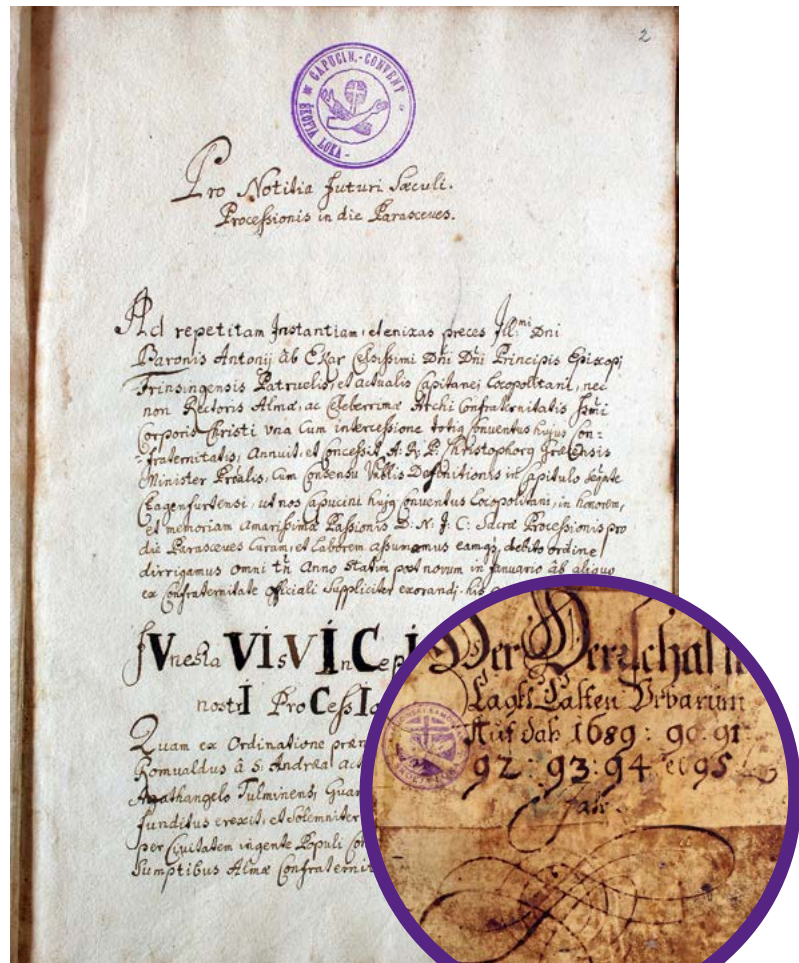 2
CAPUCIN.-CONVENT
ŠKOFJA LOKA
Pro Notitia futuri Sæculi.
Processionis in die Parasceves.
Ad repetitam Instantiam, et enixas preces Ill:mi Dni
Baronis Antonij ab Ekar Celsissimi Dni Dni Principis Episcopi
Frinsingensis Patruelis, et actualis Capitanei Locopolitani, nec
non Rectoris Almæ, ac Celeberrimæ Archi Confraternitatis
Corporis Christi vna Cum intercessione Conventus hujus Con=
=fraternitatis, Annuit, et Concessit A. R. P. Christophorg
Minister Prålis, Cum Consensu Definitionis in Capitulo
Clagenfurtensi, ut nos Capucini hujg Conventus Locopolitani, in honorem,
et memoriam amarissimæ Passionis D: N: J: C: Sacræ Processionis pro
die Parasceves Curam, et Laborem assumamus eamqȝ debito ordine
dirrigamus omni Anno statim post novum in Januario ab aliquo
ex Confraternitate Officiali suppliciter exorandi. his
fVnesta VIsVInCep
nostrI ProCessIo
Quam ex Ordinatione
Romualdus à S. Andrea
Agathangelo Tulminens, Guar
funditus erexit, et Solemniter
per Civitatem ingente Populi
Sumptibus Almæ Confraterni
Der
Casten Vrbarium
Auf daß 1689: 90: 91:
92: 93: 94 et 95
Jahr.